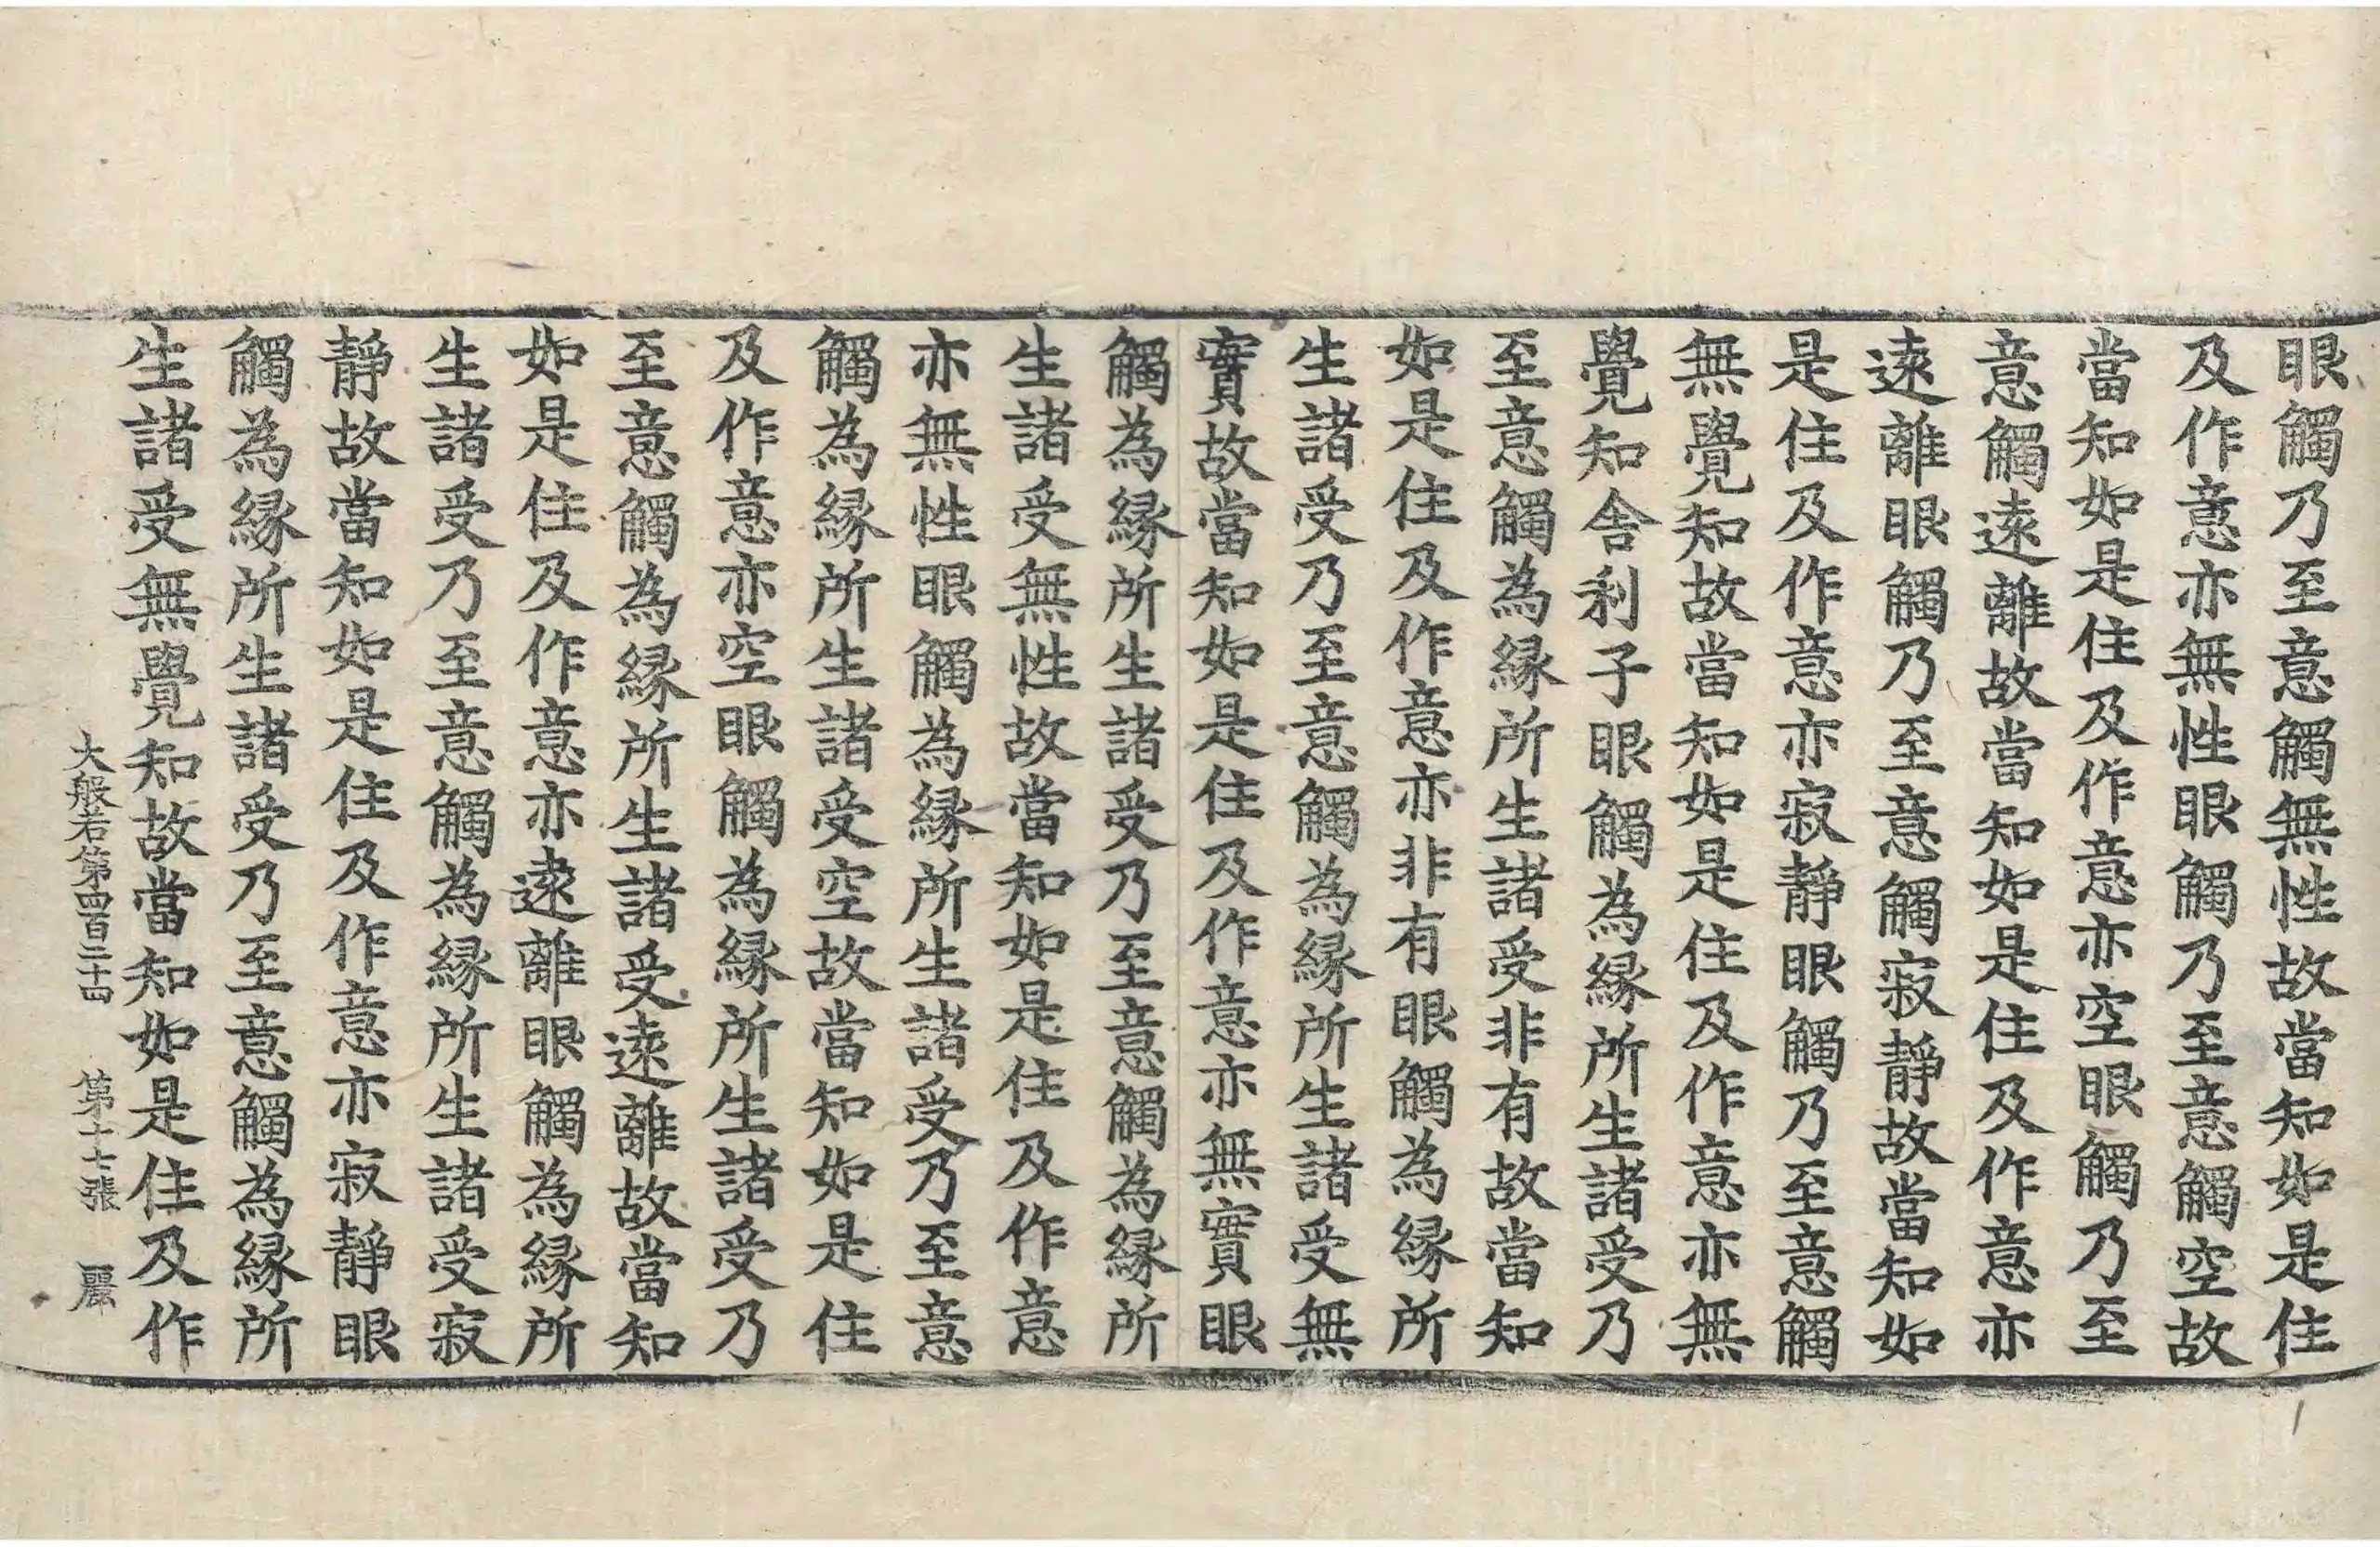 眼觸乃至意觸無性故當知如是住
及作意亦無性眼觸乃至意觸空故
當知如是住及作意亦空眼觸乃至
意觸遠離故當知如是住及作意亦
遠離眼觸乃至意觸寂靜故當知如
是住及作意亦寂靜眼觸乃至意觸
無覺知故當知如是住及作意亦無
覺知舍利子眼觸為緣所生諸受乃
至意觸為緣所生諸受非有故當知
如是住及作意亦非有眼觸為緣所
生諸受乃至意觸為緣所生諸受無
實故當知如是住及作意亦無實眼
觸為緣所生諸受乃至意觸為緣所
生諸受無性故當知如是住及作意
亦無性眼觸為緣所生諸受乃至意
觸為緣所生諸受空故當知如是住
及作意亦空眼觸為緣所生諸受乃
至意觸為緣所生諸受遠離故當知
如是住及作意亦遠離眼觸為緣所
生諸受乃至意觸為緣所生諸受寂
靜故當知如是住及作意亦寂靜眼
觸為緣所生諸受乃至意觸為緣所
生諸受無覺知故當知如是住及作
大般若第四百二十四 第十七張 麗